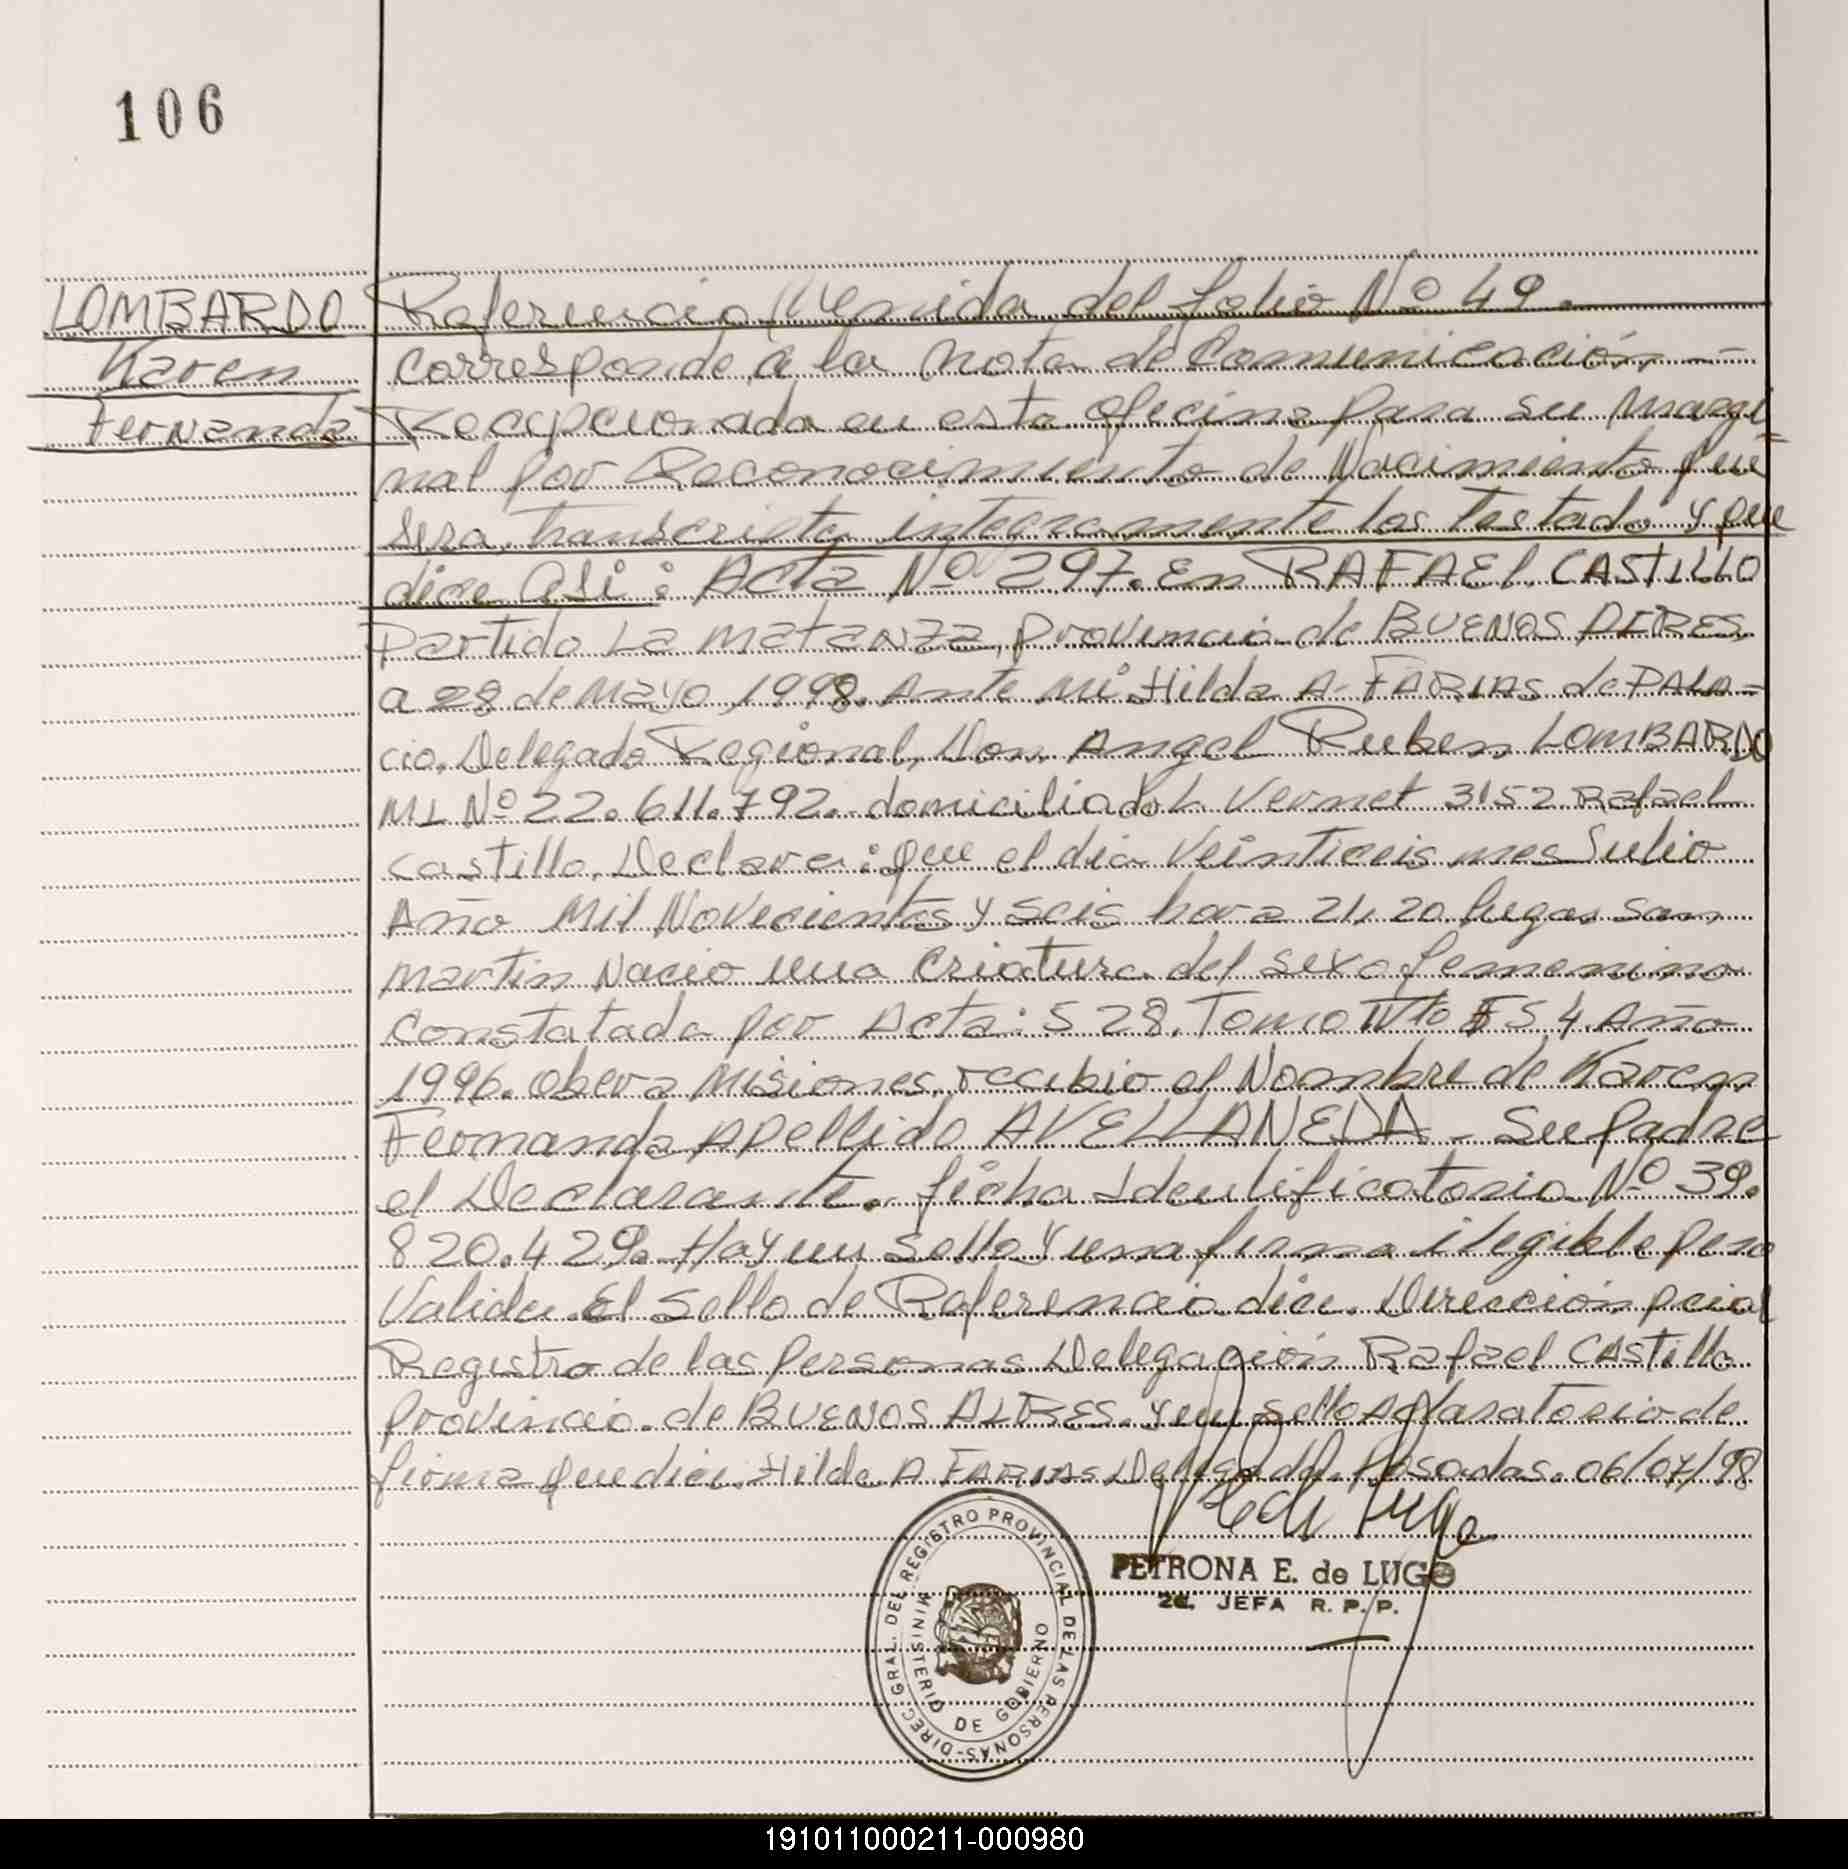 106
LOMBARDO
Karen
Fernanda
Referencia Venida del folio Nº 49.
corresponde a la Nota de Comunicación
Recepcionada en esta Oficina para su Margi
nal por Reconocimiento de Nacimiento que
sera transcripta integramente los Testado y que
dice asi: Acta Nº 297. En RAFAEL CASTILLO
Partido La Matanza, Provincia de BUENOS AIRES
a 28 de Mayo 1998. Ante mi Hilda A. FARIAS de PALA-
cio, Delegado Regional, Don Angel Ruben LOMBARDO
MI Nº 22.611.792. domiciliado L. Vernet 3152 Rafael
Castillo. Declara: que el dia Veinticeis mes Julio
Año Mil Novecientos y seis hora 21,20 lugar San
Martin Nacio una Criatura del sexo femenino
Constatada por Acta: 528. Tomo IVto F 54 Año
1996. Obera Misiones, recibio el Nombre de Karen
Fernanda Apellido AVELLANEDA - Su Padre
el Declarante. ficha Identificatoria Nº 39.
820.429. Hay un Sello y una firma ilegible pero
Valida. El Sello de Referencia dice. Dirección Pcial
Registro de las Personas Delegación Rafael Castillo
Provincia de BUENOS AIRES. y un Sello Aclaratorio de
firma que dice. Hilda A FARIAS Delegada. Posadas. 06/07/98
PETRONA E. de LUGO
2a. JEFA R. P. P.
DIREC. GRAL. DEL REGISTRO PROVINCIAL DE LAS PERSONAS-
MINISTERIO DE GOBIERNO
191011000211-000980